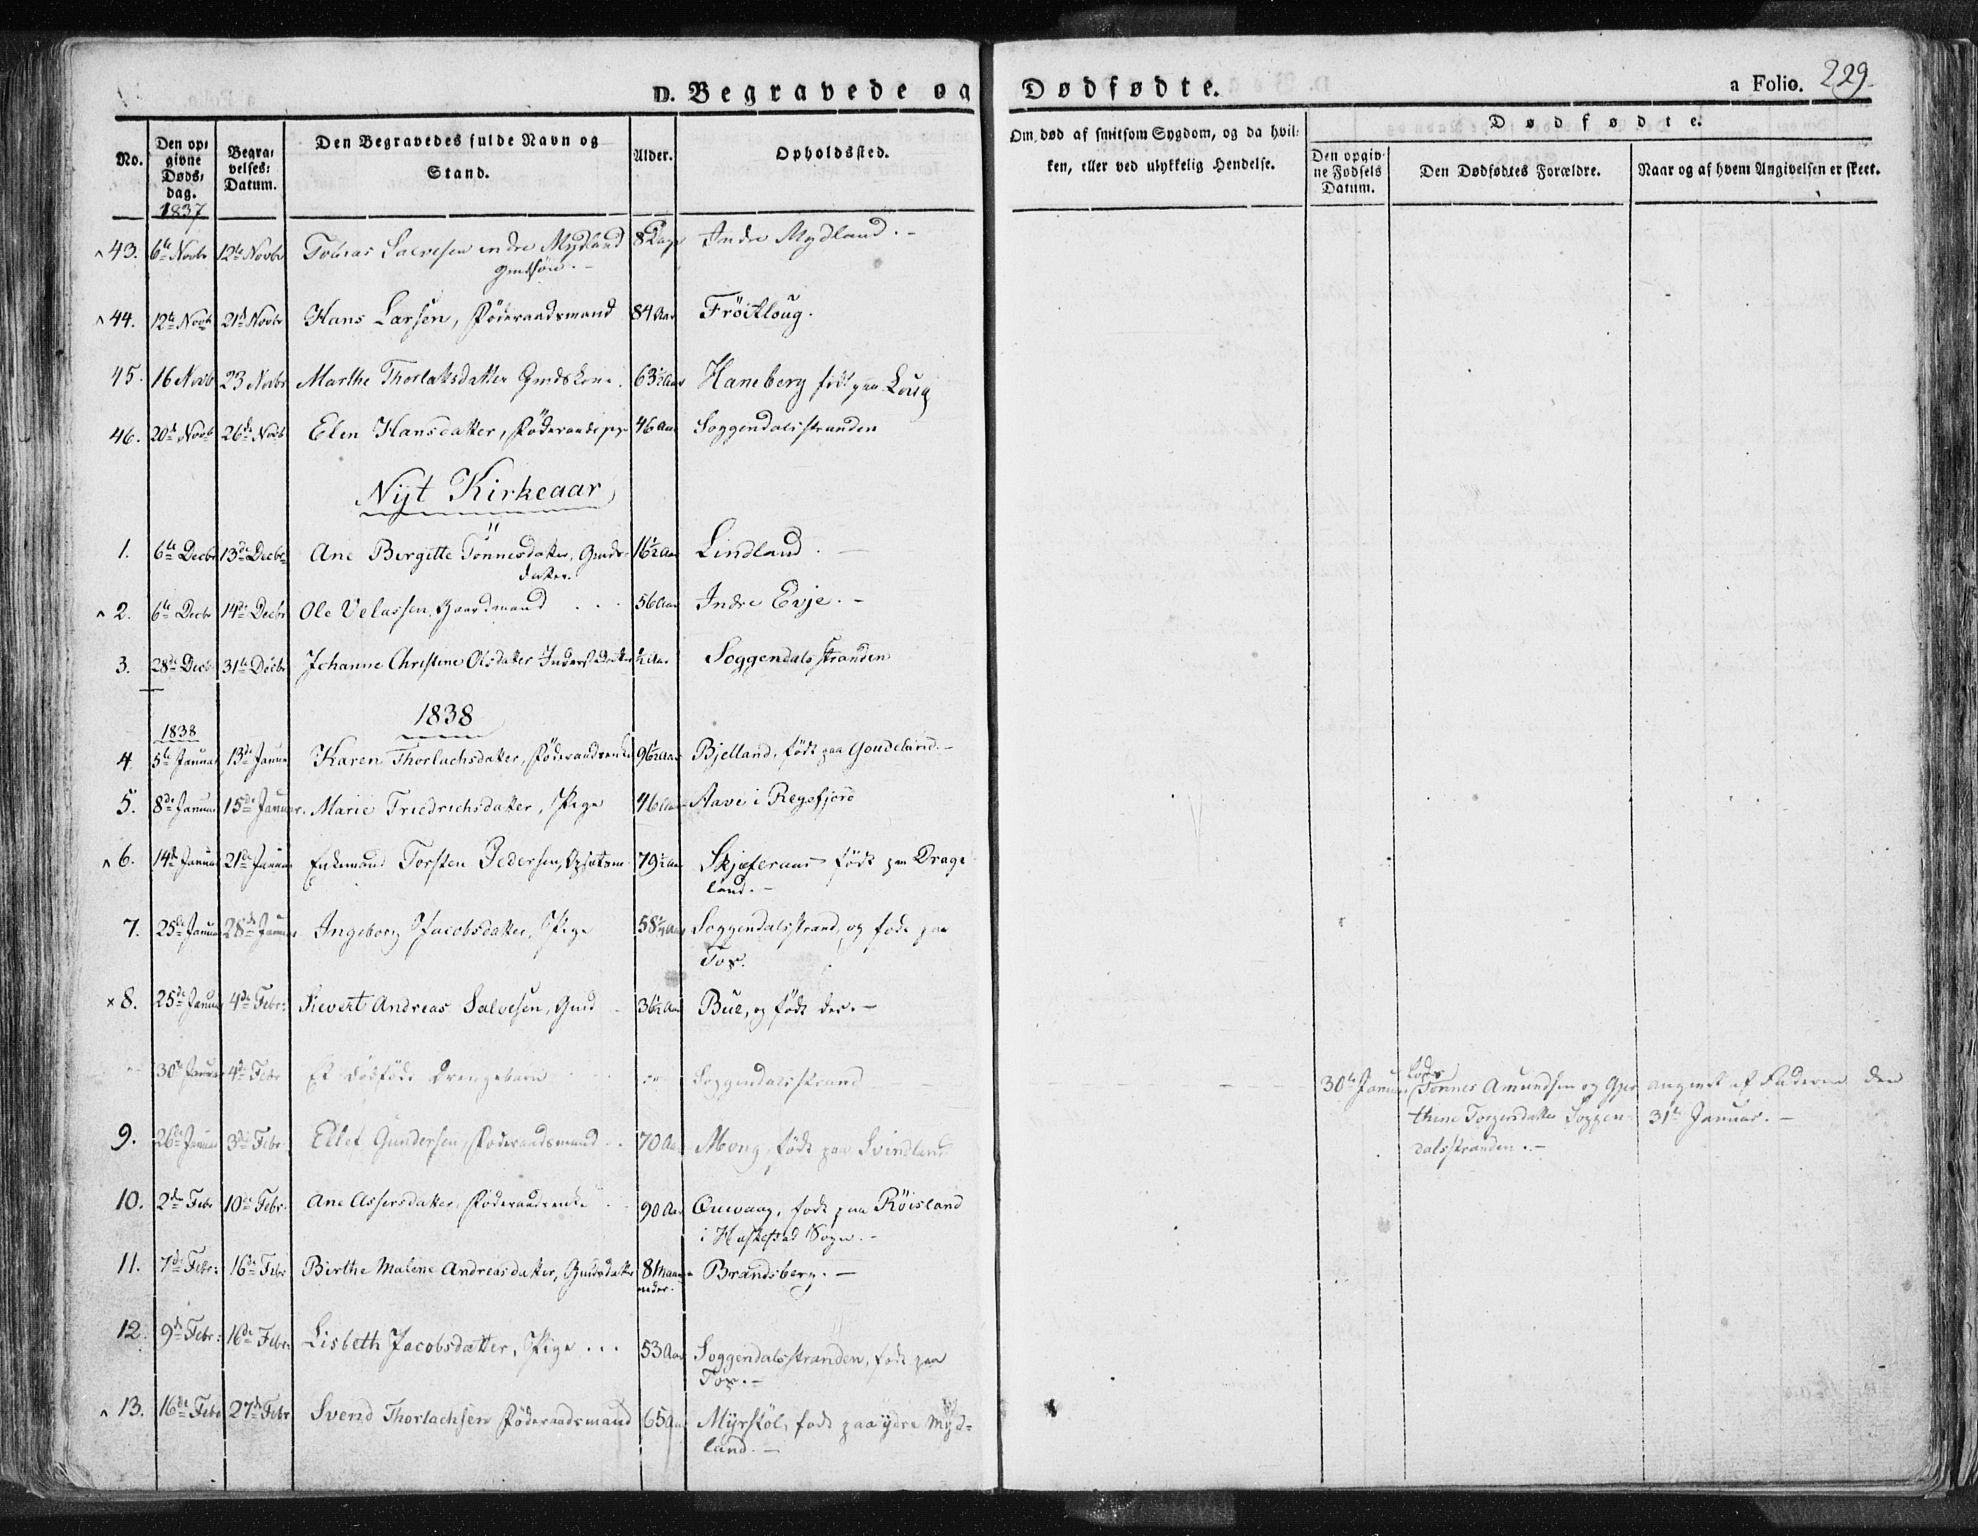 D. Begravede og Dødfødte. a Folio. 229
No. Den opgivne Døds-dag. Begravelses-Datum. Den Begravedes fulde Navn og Stand. Alder. Opholdssted. Om død af smitsom Sygdom, og da hvilken, eller ved ulykkelig Hendelse. Dødfødte.
Den opgivne Fødsels Datum. Den Dødfødtes Forældre. Naar og af hvem Angivelsen er skeet.
1837
43. 6te Novbr 12te Novbr Tobias Salvesen indre Mydland 8 Dage Indre Mydland. -
Gmdsøn. -
44. 12te Novb 21de Novbr Hans Larsen, Föderaadsmand 84 Aar Fröitloug.
45. 16 Novb 23 Novbr Marthe Thorlaksdatter Gmdskone. 63½ Aar Haneberg født paa Loug
46. 20de Novb 26de Novb Elen Hansdatter, 46 Aar Soggendalsstranden
Nyt Kirkeaar
1. 6te Decbr 13de Decbr Ane Birgitte Tönnesdatter, Gmds- 16½ Aar Lindland. -
datter.
2. 6te Decbr 14de Decbr Ole Velassen, Gaardmand . . . 56 Aar Indre Evje. -
3. 28de Decb 31te Decbr Johanne Christine Olsdatter Inderstdatter ½ Aar Soggendalsstranden
1838
1838
4. 5te Januar 13de Januar Karen Thorlachsdatter, Föderaadsenke 96½ Aar Bjelland, født paa Goudeland. -
5. 8de Januar 15de Januar. Marie Friedrichsdatter, Pige 46 Aar Aavei Regefjord
6. 14de Januar 21de Januar Enkemand Torsten Pedersen, 79½ Aar Skjeferaas født paa Drage
land. -
7. 25de Januar 28de Januar Ingeborg Jacobsdatter, Pige 58¼ Aar Soggendalsstrand, og født paa
Tox.
× 8. 25de Januar 4de Febr: Sievert Andreas Salvesen, Gmd 36½ Aar Bue, og født der. -
30te Januar 4de Febr Et dödfödt Drengebarn Soggendalsstrand 30te Januar Lods Tönnes Amundsen og angivet af Faderen den
thine Torgersdatter Soggen- 31te Januar. -
dalsstranden. -
9. 26de Januar 3de Febr. Ellef Gundersen, Föderaadsmand 70 Aar Mong, født paa Svindland
10. 2den Febr 10de Febr. Ane Assersdatter, Föderaadsenke 90 Aar født paa Röisland
i Heskestad Sogn. -
11. 7de Febr: 16de Febr Birthe Malene Andreasdatter, Gmdsdatter 8 Maa- Brandsberg. -
neder.
12. 9de Febr: 16de Febr: Lisbeth Jacobsdatter, Pige . . . 53 Aar Soggendalsstranden, født paa
Tox. -
13. 16de Febr 27de Febr Svend Thorlachsen Föderaadsmand 65 Aar Myrstöl, født paa ydre Myd-
land. -